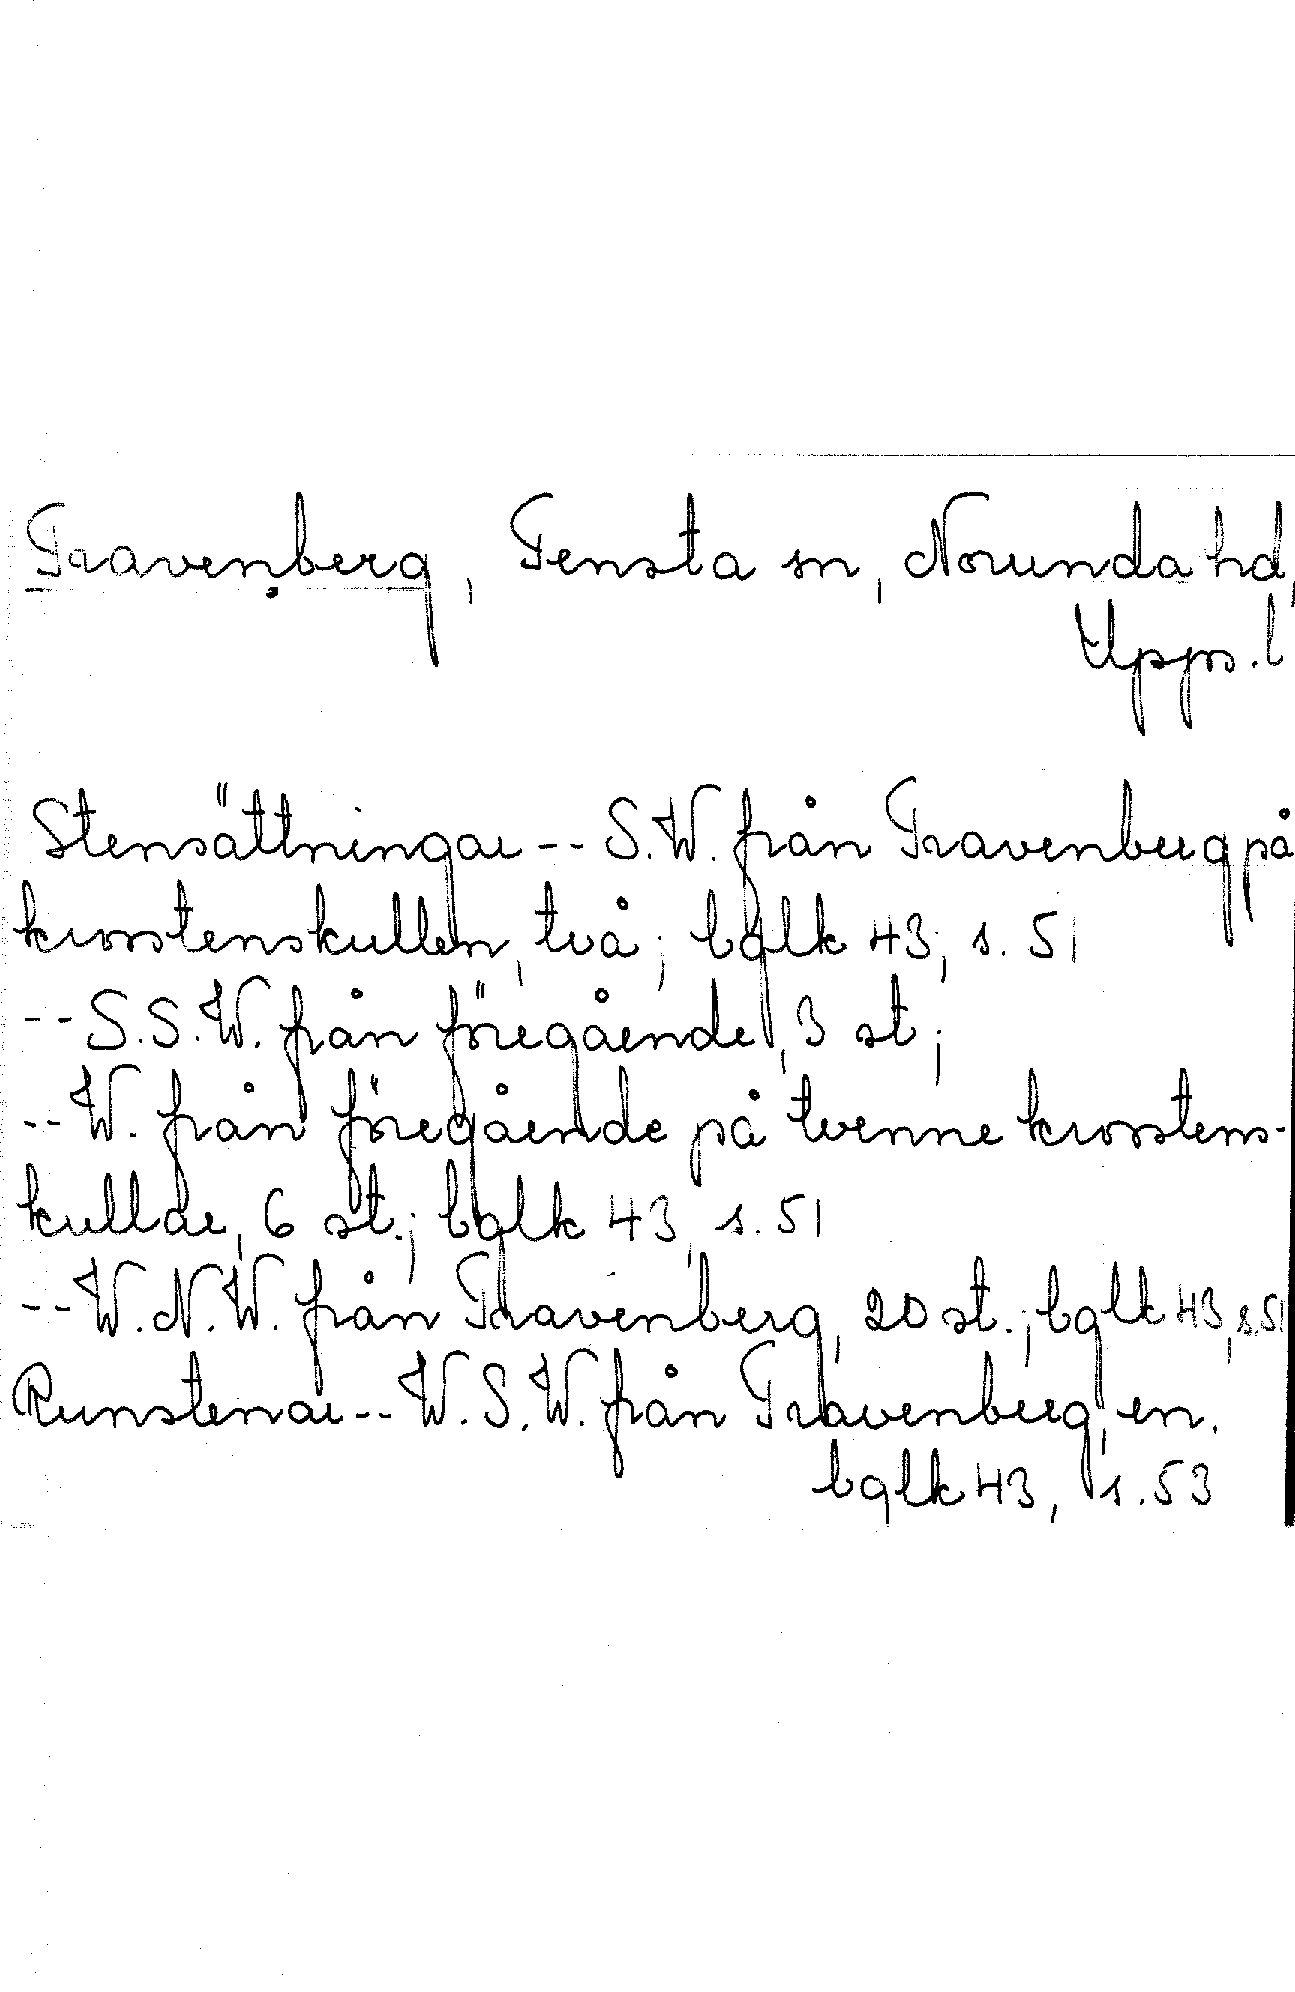 Travenberg, Tensta sn, Norunda hd,
Upps. l
Stensättningar -- S.W. från Travenberg på
krosstenskullen, två; bqlk 43, s. 51
-- S.S.W. från föregående, 3 st;
-- W. från föregående på tvenne krosstens-
kullar, 6 st.; bqlk 43, s. 51
-- W.N.W. från Travenberg, 20 st.; bqlk 43, s. 51
Runstenar -- W.S.W. från Travenberg, en.
bqlk 43, s. 53